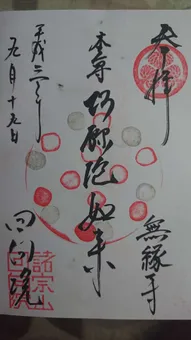 奉拝
無縁寺
本尊 阿弥陀如来
平成
九月十五日
回向院
諸宗山